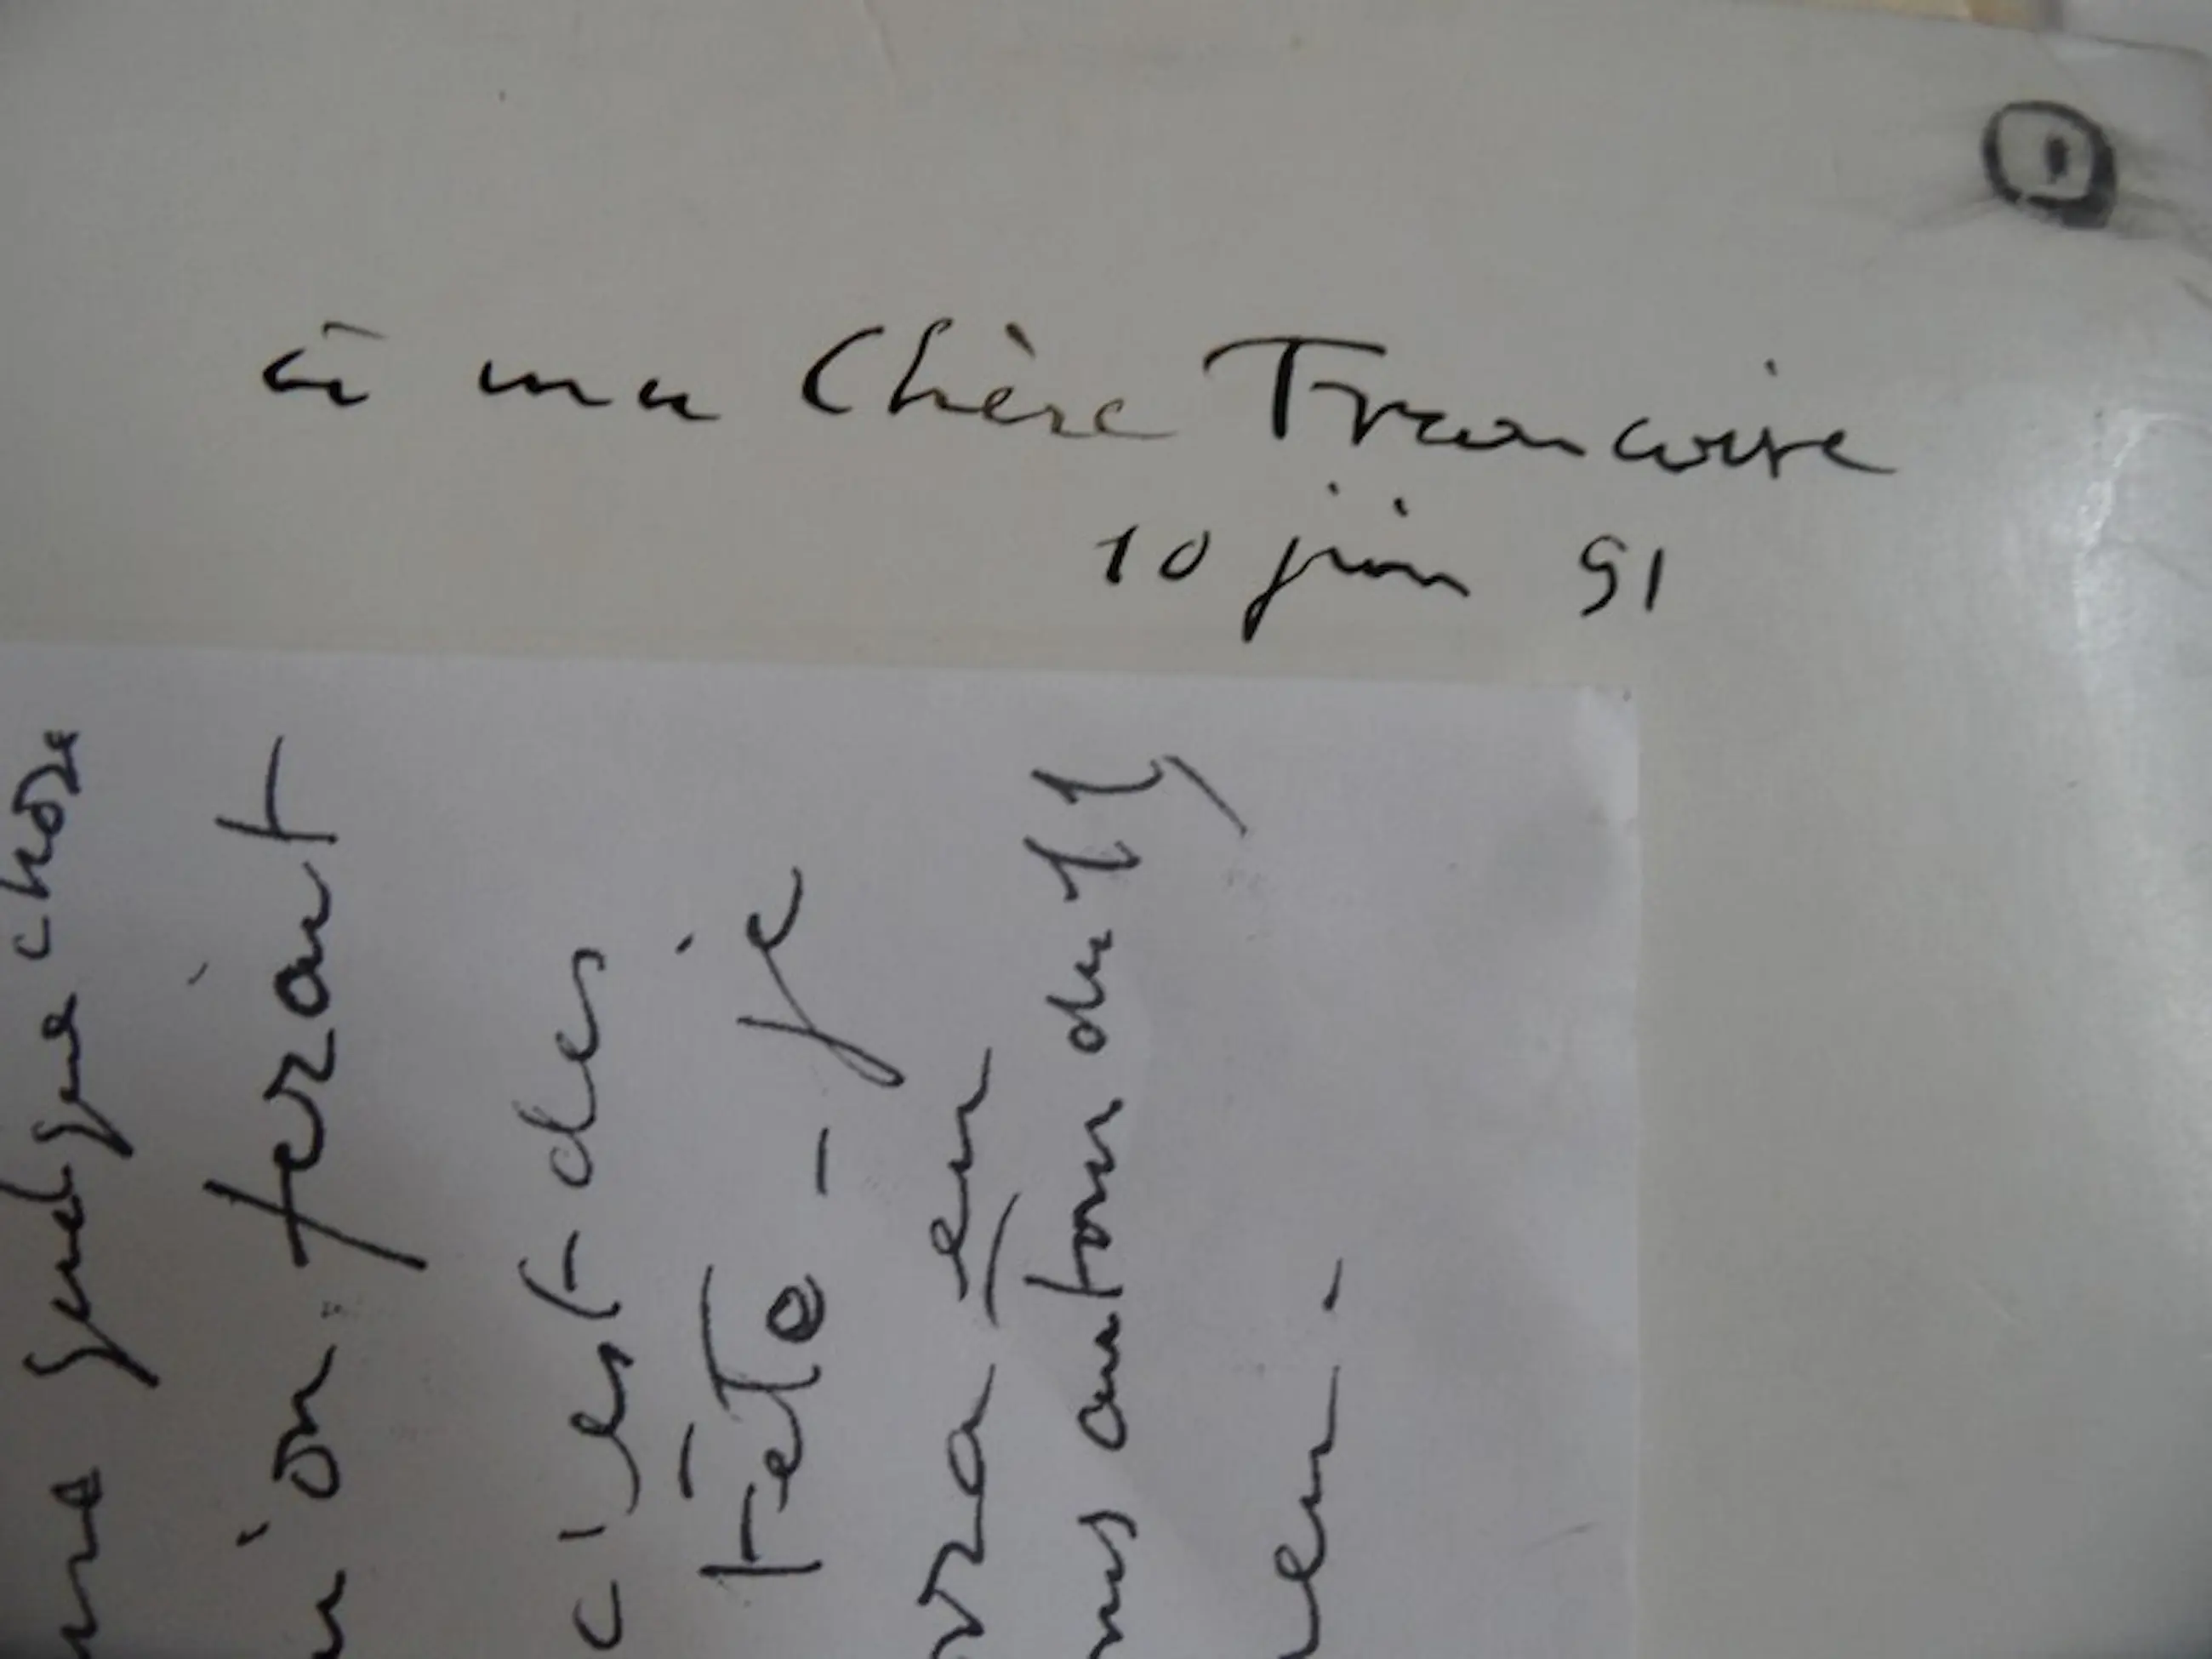 à ma Chère Francoise
10 juin 91
quelque chose
on ferait
c'est des
tête - je
en
autour du 11